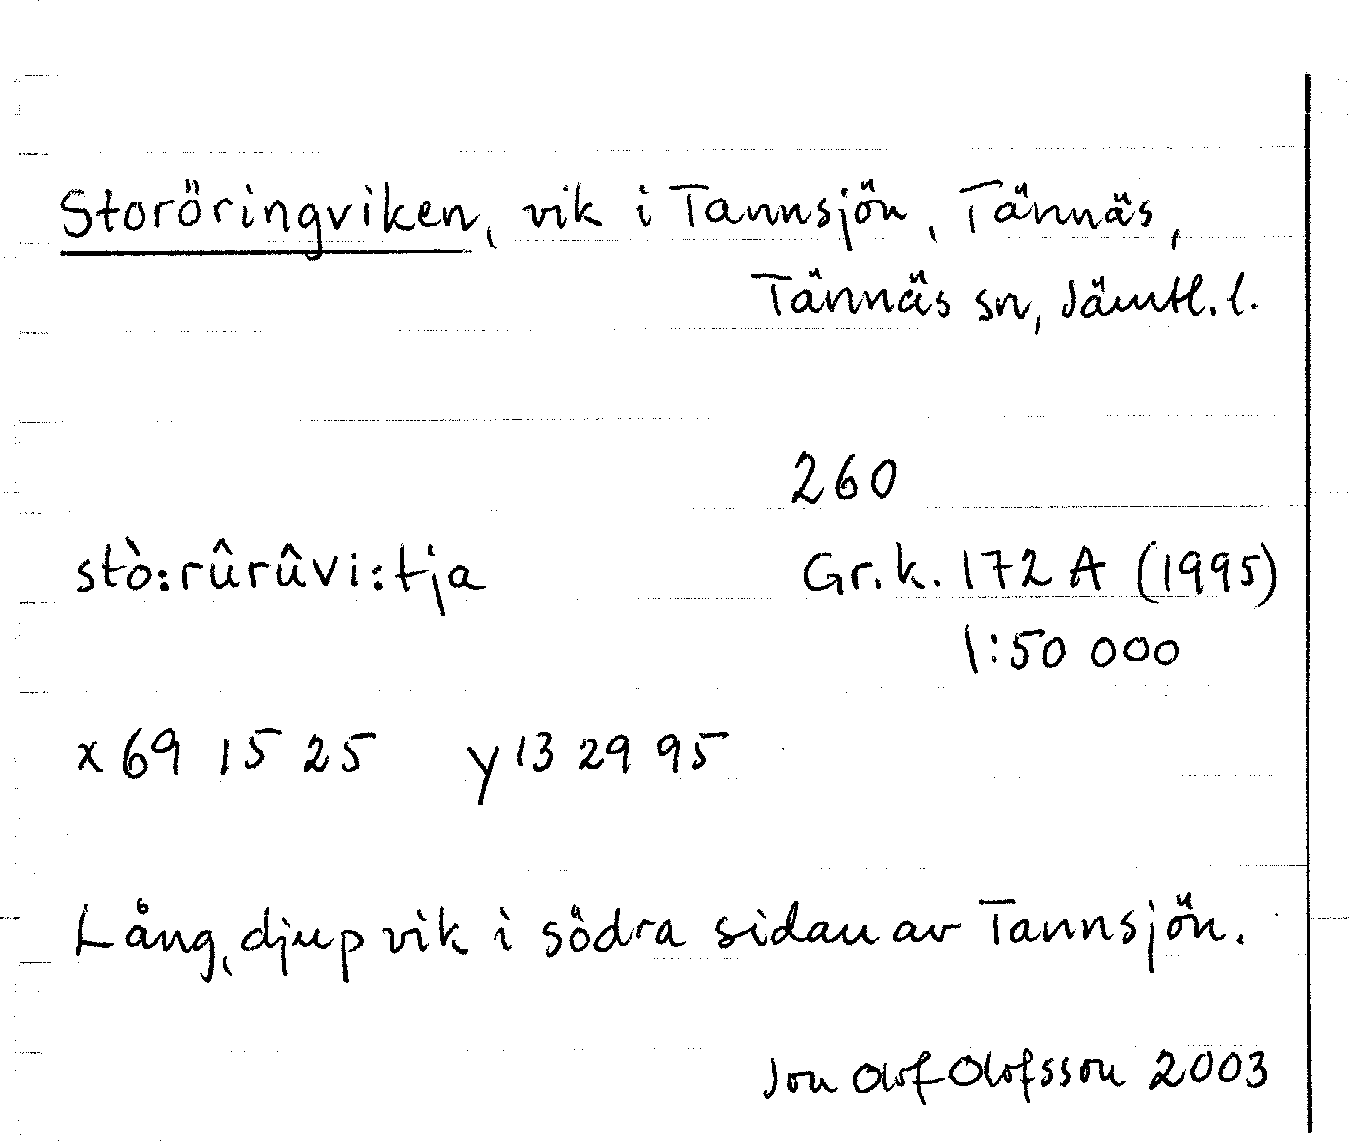 Storöringviken, vik i Tannsjön, Tännäs,
Tännäs sn, Jämtl. l.
260
stò:rûrûvi:tja
Gr. k. 172 A (1995)
1:50 000
x 69 15 25 y 13 29 95
Lång, djup vik i södra sidan av Tannsjön.
Jon Olof Olofsson 2003